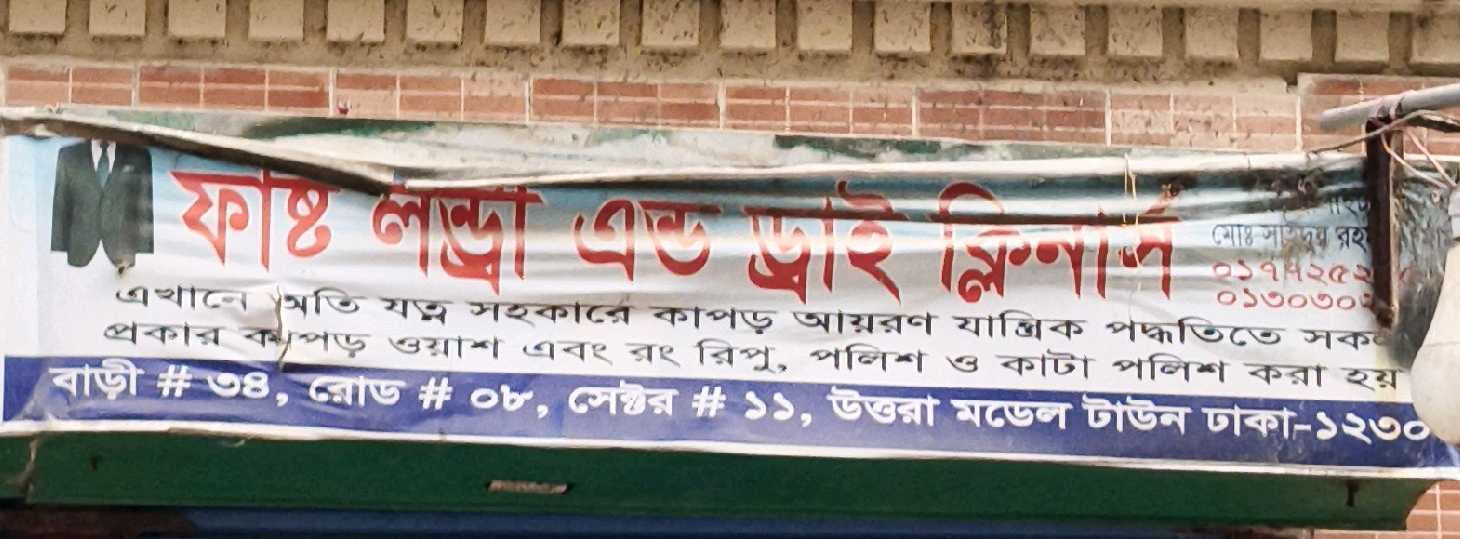 ফাষ্ট লন্ড্রী এন্ড ড্রাই ক্লিনার্স
মোঃ রহ
এখানে অতি যত্ন সহকারে কাপড় আয়রণ যান্ত্রিক পদ্ধতিতে সকল
প্রকার কাপড় ওয়াশ এবং রং রিপু, পলিশ ও কাটা পলিশ করা হয়
বাড়ী # ৩৪, রোড # ০৮, সেক্টর # ১১, উত্তরা মডেল টাউন ঢাকা-১২৩০